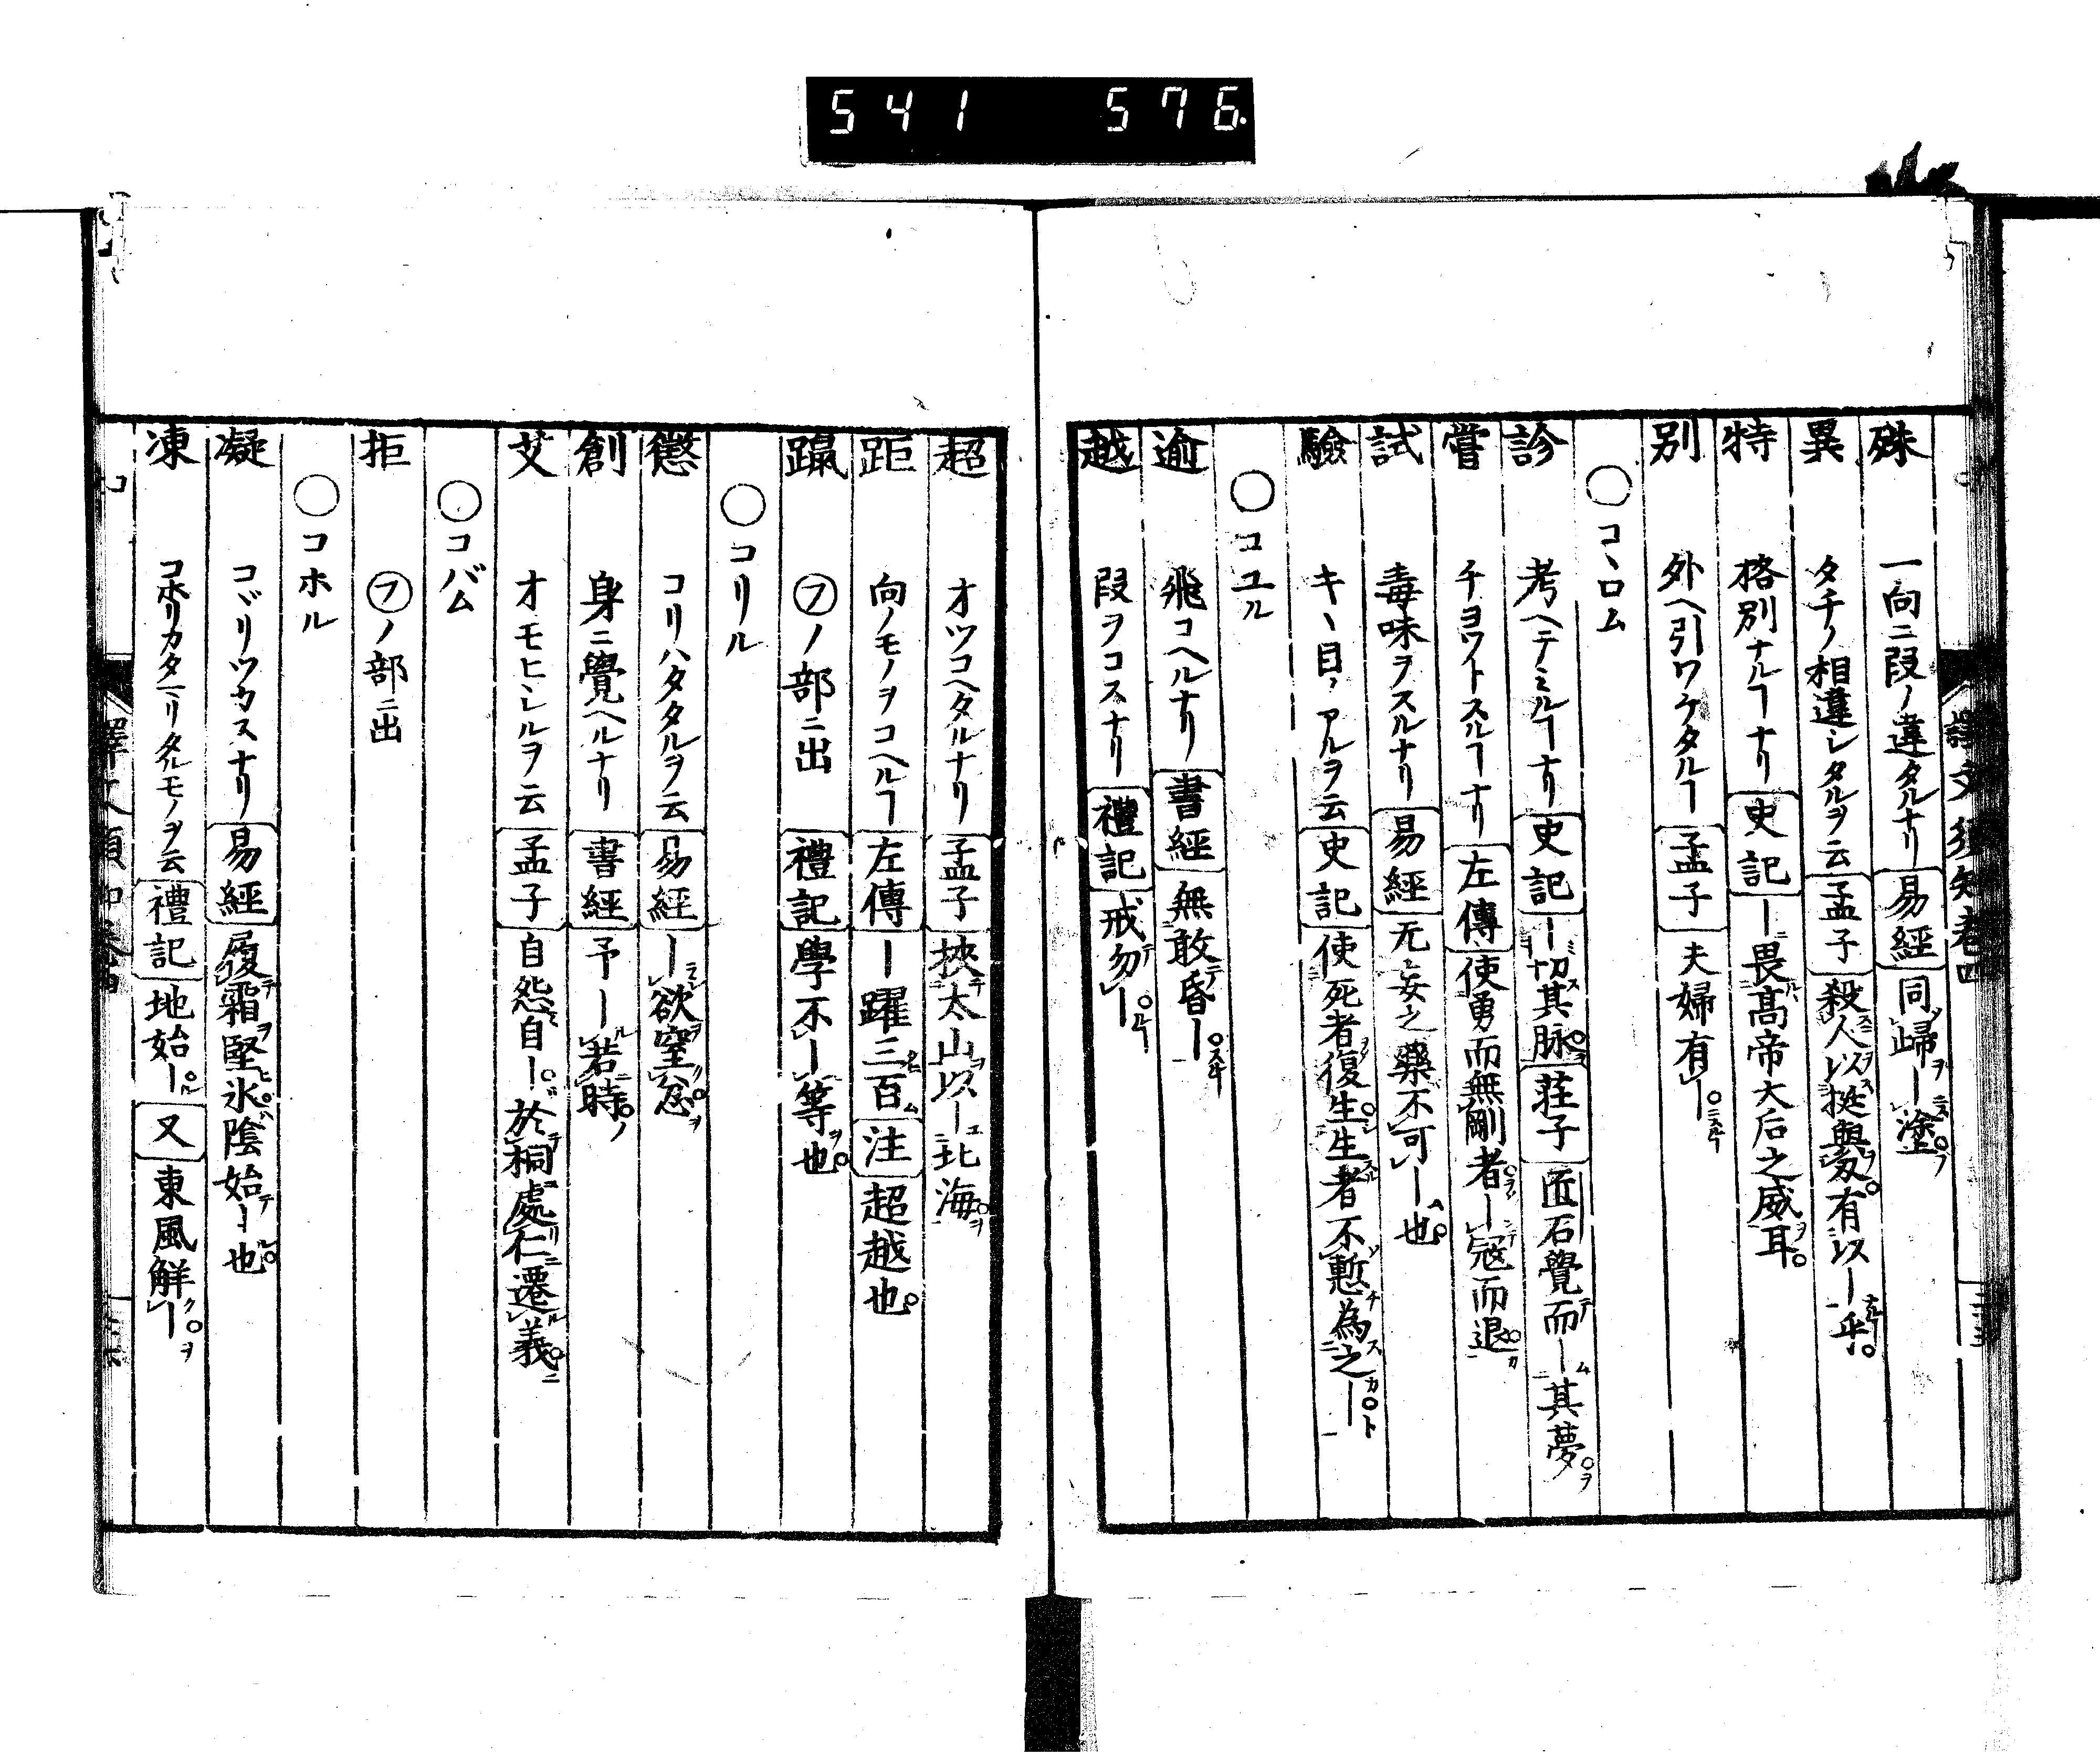 541 576
譯文須知卷四
殊 一向ニ段ノ違タルナリ 易經 同歸ヲー塗
異 タチノ相違シタルヲ云 孟子 殺人以挺與刄有以ー乎
特 格別ナルヿナリ 史記 ー畏高帝大后之威耳
別 外ヘ引ワケタルヿ 孟子 夫婦有ー
○コヽロム
診 考ヘテミルヿナリ 史記 ー切其脉 莊子 匠石覺而ー其夢
嘗 チヨウトスルヿナリ 左傳 使勇而無剛者ー寇而退
試 毒味ヲスルナリ 易經 无妄之藥不可ー也
驗 キヽ目ノアルヲ云 史記 使死者復生生者不慙為之ー
○コユル
逾 飛コヘルナリ 書經 無敢昏ー
越 段ヲコスナリ 禮記 戒勿ー
超 オツコヘタルナリ 孟子 挾太山以ー北海
距 向ノモノヲコヘルヿ 左傳 ー躍三百 注 超越也
躐 フノ部ニ出 禮記 學不ー等也
○コリル
懲 コリハタタルヲ云 易經 ー欲窒忿
創 身ニ覺ヘルナリ 書經 予ー若時
艾 オモヒシルヲ云 孟子 自怨自ー於桐處仁遷義
○コバム
拒 フノ部ニ出
○コホル
凝 コヾリツカスナリ 易經 履霜堅氷陰始ー也
凍 コホリカタマリタルモノヲ云 禮記 地始ー 又 東風解ー
コ